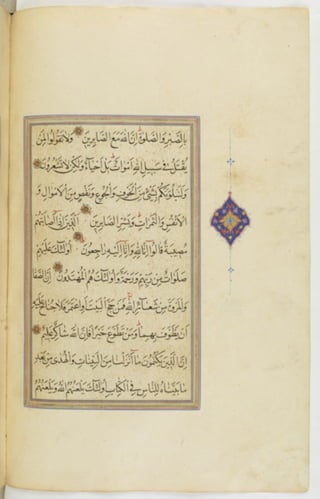 بِالصَّبْرِ وَالصَّلٰوةِ اِنَّ اللّٰهَ مَعَ الصَّابِرِينَ وَلَا تَقُولُوا لِمَنْ
يُقْتَلُ فِي سَبِيلِ اللّٰهِ اَمْوَاتٌ بَلْ اَحْيَاءٌ وَلٰكِنْ لَا تَشْعُرُونَ
وَلَنَبْلُوَنَّكُمْ بِشَيْءٍ مِنَ الْخَوْفِ وَالْجُوعِ وَنَقْصٍ مِنَ الْاَمْوَالِ وَ
الْاَنْفُسِ وَالثَّمَرَاتِ وَبَشِّرِ الصَّابِرِينَ اَلَّذِينَ اِذَا اَصَابَتْهُمْ
مُصِيبَةٌ قَالُوا اِنَّا لِلّٰهِ وَاِنَّا اِلَيْهِ رَاجِعُونَ اُولٰئِكَ عَلَيْهِمْ
صَلَوَاتٌ مِنْ رَبِّهِمْ وَرَحْمَةٌ وَاُولٰئِكَ هُمُ الْمُهْتَدُونَ اِنَّ الصَّفَا
وَالْمَرْوَةَ مِنْ شَعَائِرِ اللّٰهِ فَمَنْ حَجَّ الْبَيْتَ اَوِ اعْتَمَرَ فَلَا جُنَاحَ عَلَيْهِ
اَنْ يَطَّوَّفَ بِهِمَا وَمَنْ تَطَوَّعَ خَيْرًا فَاِنَّ اللّٰهَ شَاكِرٌ عَلِيمٌ
اِنَّ الَّذِينَ يَكْتُمُونَ مَا اَنْزَلْنَا مِنَ الْبَيِّنَاتِ وَالْهُدٰى مِنْ بَعْدِ
مَا بَيَّنَّاهُ لِلنَّاسِ فِي الْكِتَابِ اُولٰئِكَ يَلْعَنُهُمُ اللّٰهُ وَيَلْعَنُهُمُ